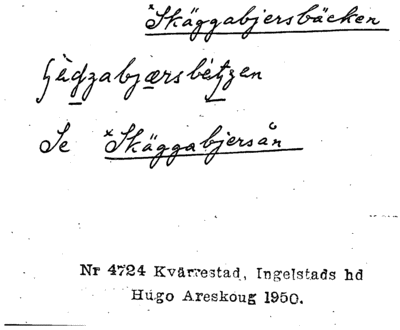 *Skäggabjersbäcken
Se *Skäggabjersån
Nr 4724 Kvärrestad, Ingelstads hd
Hugo Areskoug 1950.